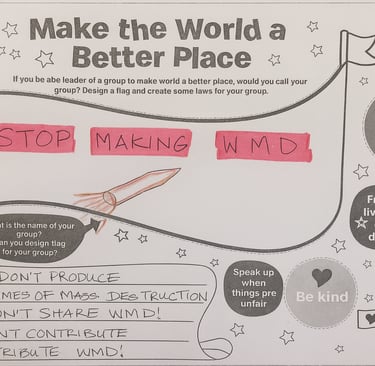 Make the World a
Better Place
If you be abe leader of a group to make world a better place, would you call your
group? Design a flag and create some laws for your group.
STOP MAKING WMD
at is the name of your
group?
an you design tlag
for your group?
DON'T PRODUCE
MES OF MASS DESTRUCTION
N'T SHARE WMD!
NT CONTRIBUTE
TRIBUTE WMD!
Speak up
when
things pre
unfair
Be kind